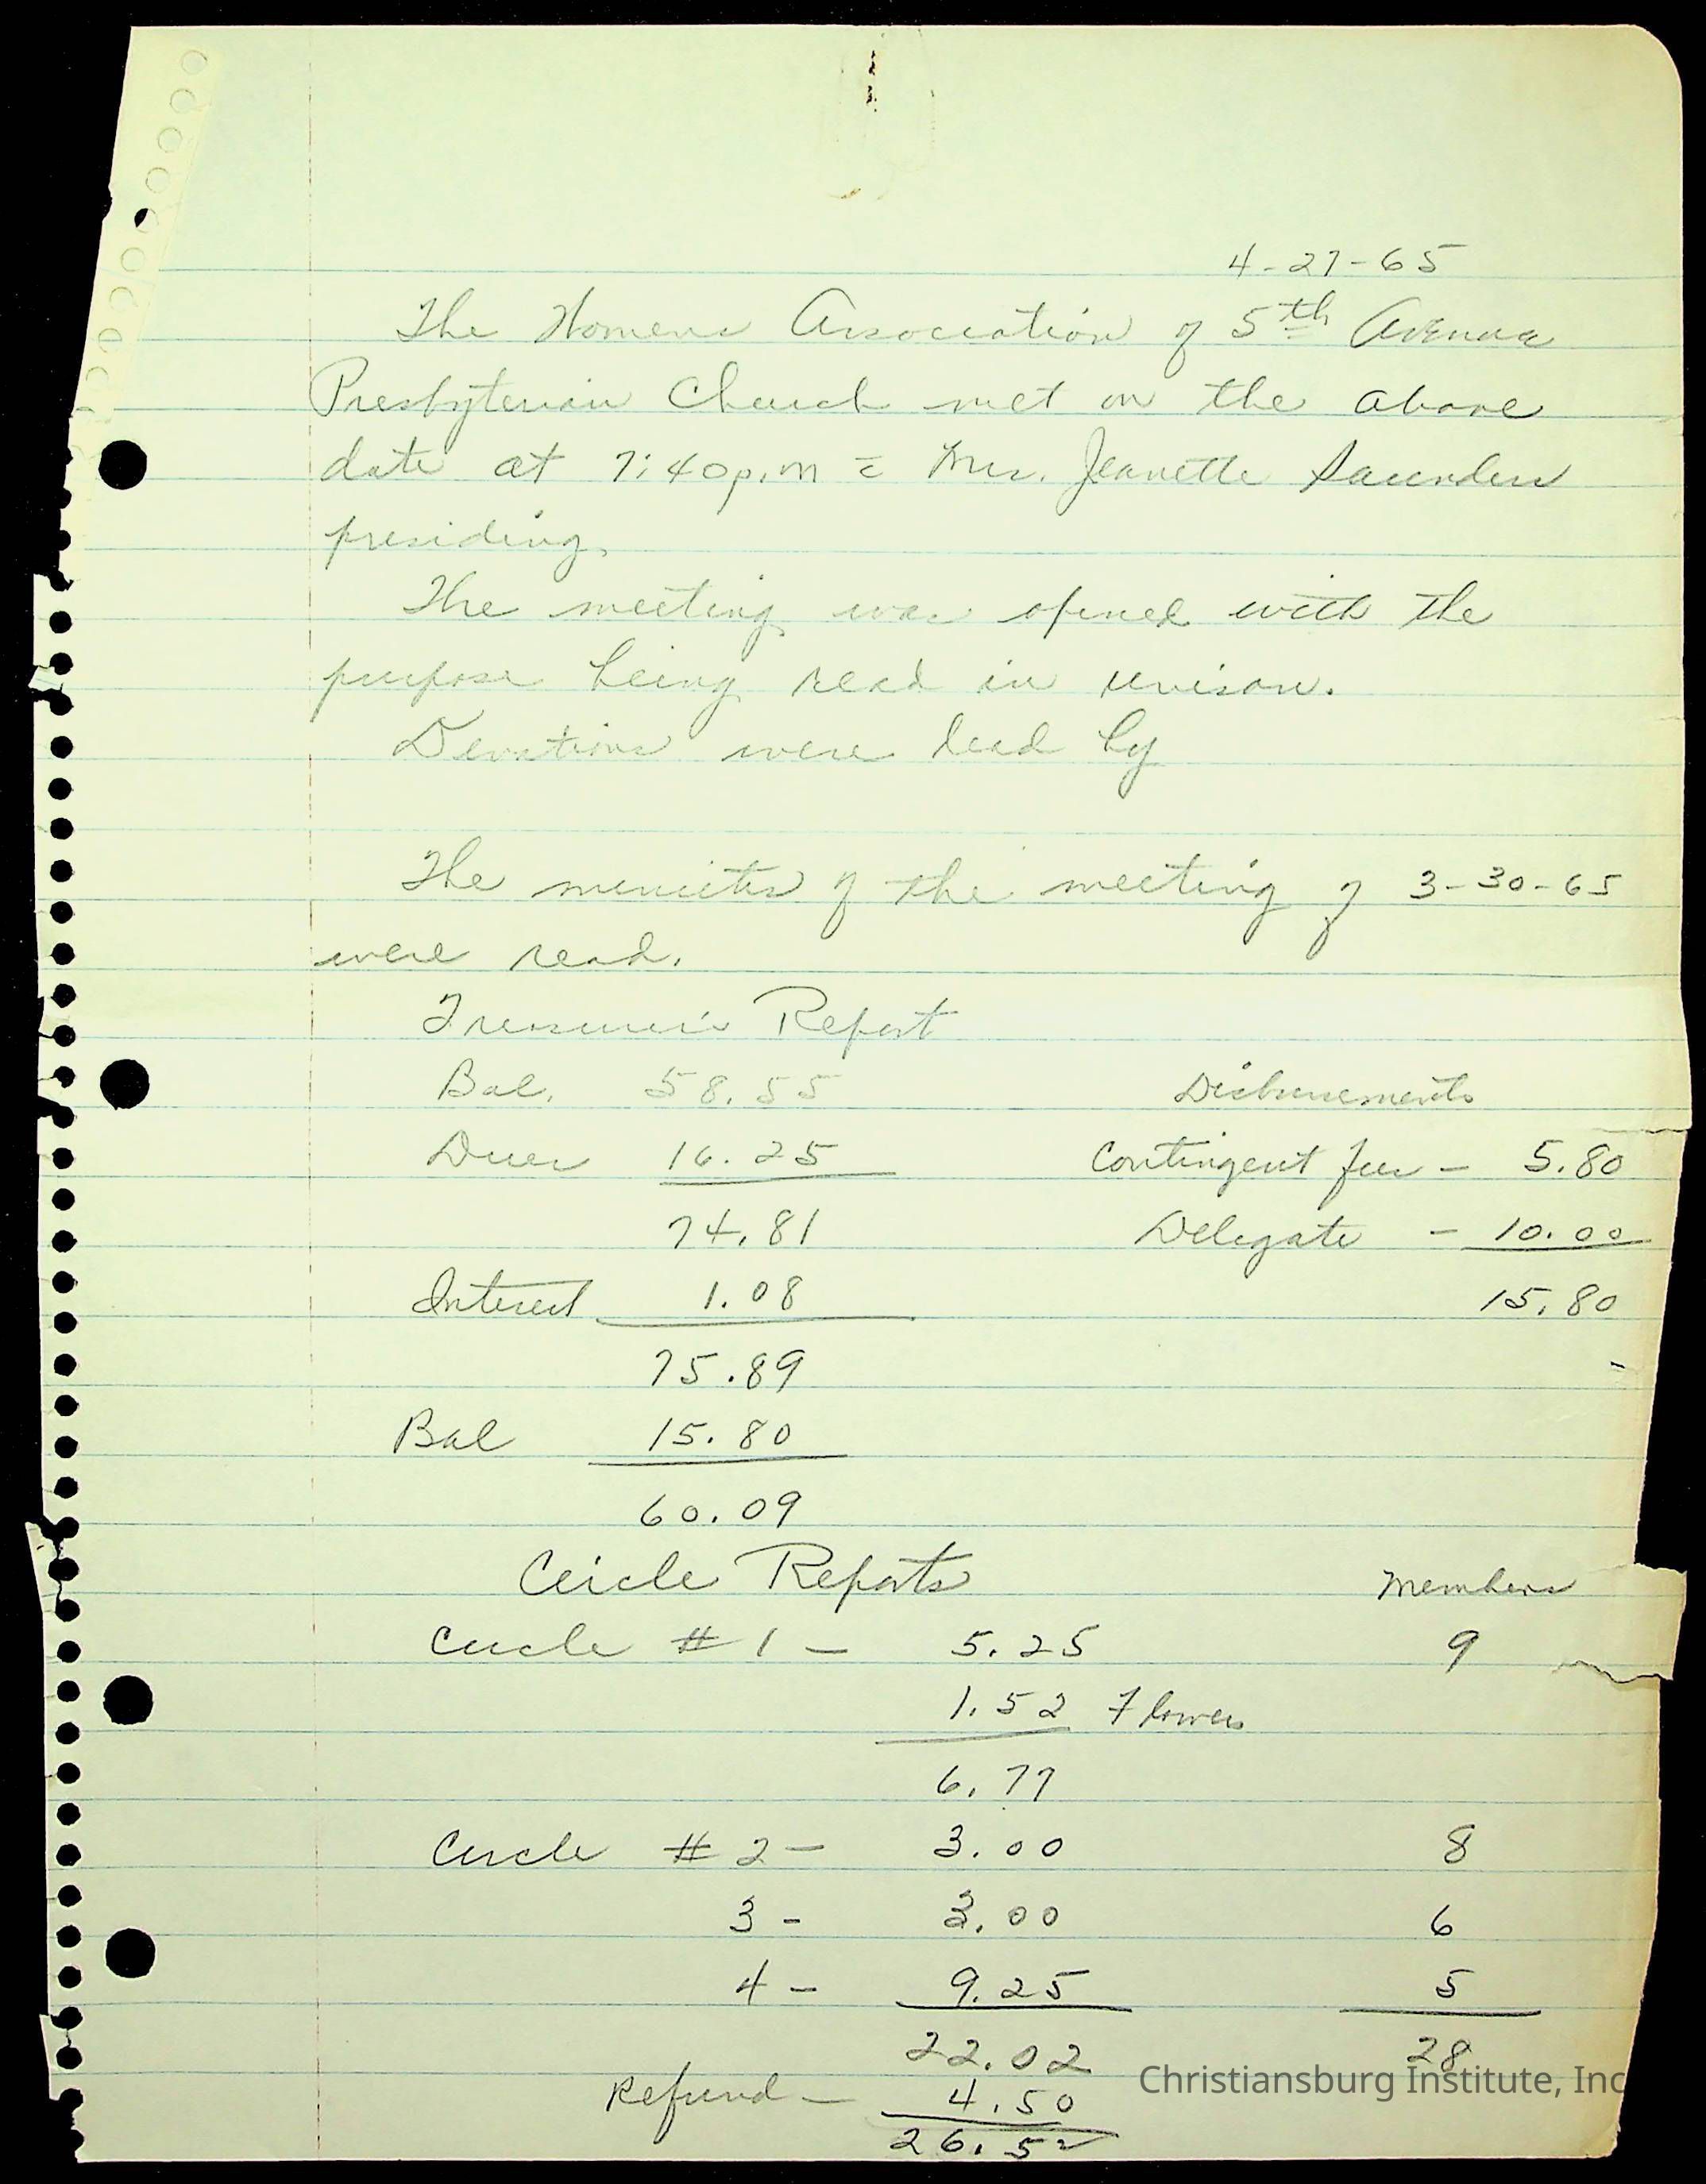 4-27-65
The Womens Association of 5th Avenue
Presbyterian Church met on the above
date at 7:40 p.m c̄ Mrs. Jeanette Saunders
presiding.
The meeting was opened with the
purpose being read in unison.
Devotions were lead by
The minutes of the meeting of 3-30-65
were read.
Treasurer's Report
Bal. 58.55 Disbursements
Dues 16.25 Contingent fees - 5.80
74.81 Delegate - 10.00
Interest 1.08 15.80
75.89
Bal 15.80
60.09
Circle Reports Members
Circle # 1 - 5.25 9
1.52 Flowers
6.77
Circle # 2 - 3.00 8
3 - 3.00 6
4 - 9.25 5
22.02 28
Refund - 4.50
26.52
Christiansburg Institute, Inc